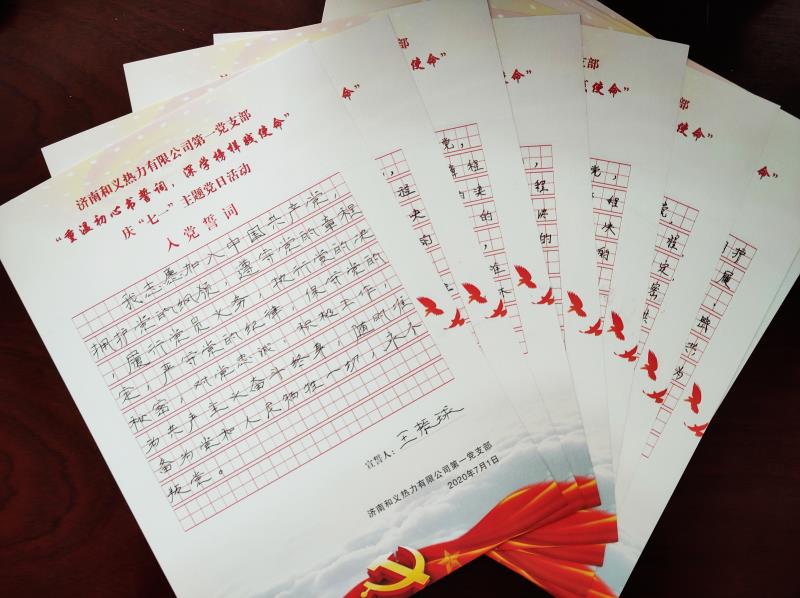 济南和义热力有限公司第一党支部
“重温初心书誓词，深学榜样践使命”
庆“七一”主题党日活动
入党誓词
我志愿加入中国共产党，
拥护党的纲领，遵守党的章程
，履行党员义务，执行党的决
定，严守党的纪律，保守党的
秘密，对党忠诚，积极工作，
为共产主义奋斗终身，随时准
备为党和人民牺牲一切，永不
叛党。
宣誓人：王振球
济南和义热力有限公司第一党支部
2020年7月1日
命”
部
使命”
命”
部
使命”
命”